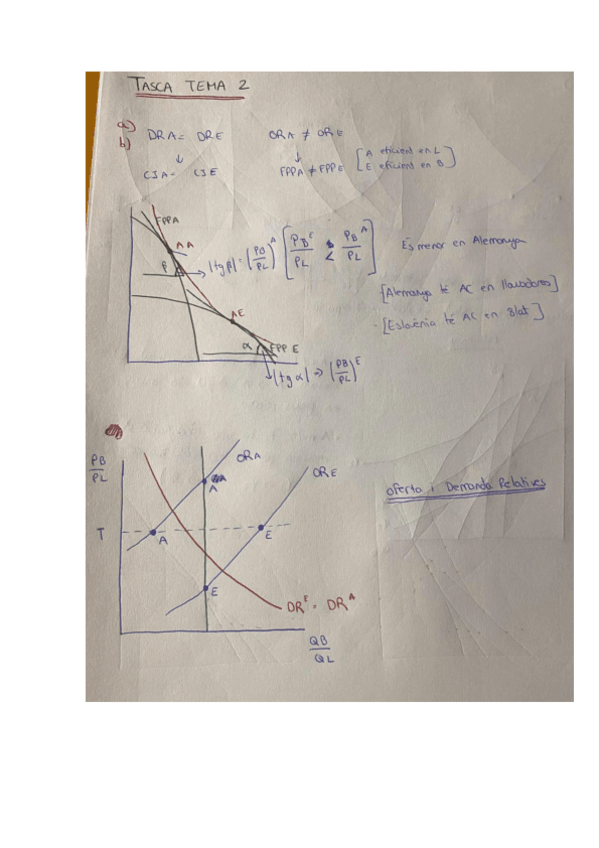 TASCA TEMA 2
a)
b) DRA = DRE ORA ≠ ORE
↓ ↓
CJA = CJE FPPA ≠ FPPE [A eficient en L
E eficient en B]
FPPA
AA
β → |tg β| = (PB/PL)^A [PB^E/PL < PB^A/PL] És menor en Alemanya
[Alemanya té AC en llavadores]
[Eslovènia té AC en Blat]
AE
α FPP E
↓|tg α| → (PB/PL)^E
PB/PL
ORA
ORE
A
Oferta i Demanda Relatives
T
A
E
E
DR^E = DR^A
QB/QL